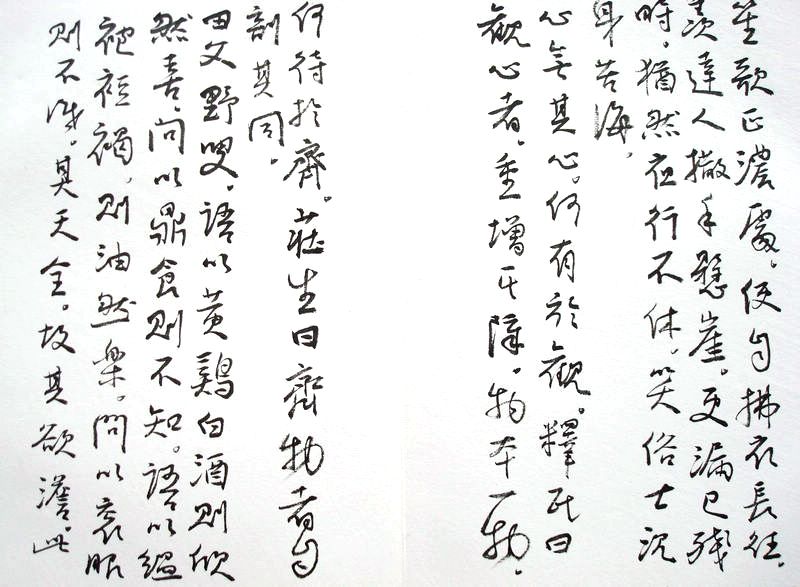 笙歌正濃處。便自拂衣長往。
羨達人撒手懸崖。更漏已殘
時。猶然夜行不休。笑俗士沉
身苦海。
心無其心。何有於觀。釋氏曰
觀心者。重增其障。物本一物。
何待於齊。莊生曰齊物者自
剖其同。
田父野叟。語以黃鷄白酒則欣
然喜。問以鼎食則不知。語以縕
袍裋褐。則油然樂。問以衮服
則不識。其天全。故其欲澹。此